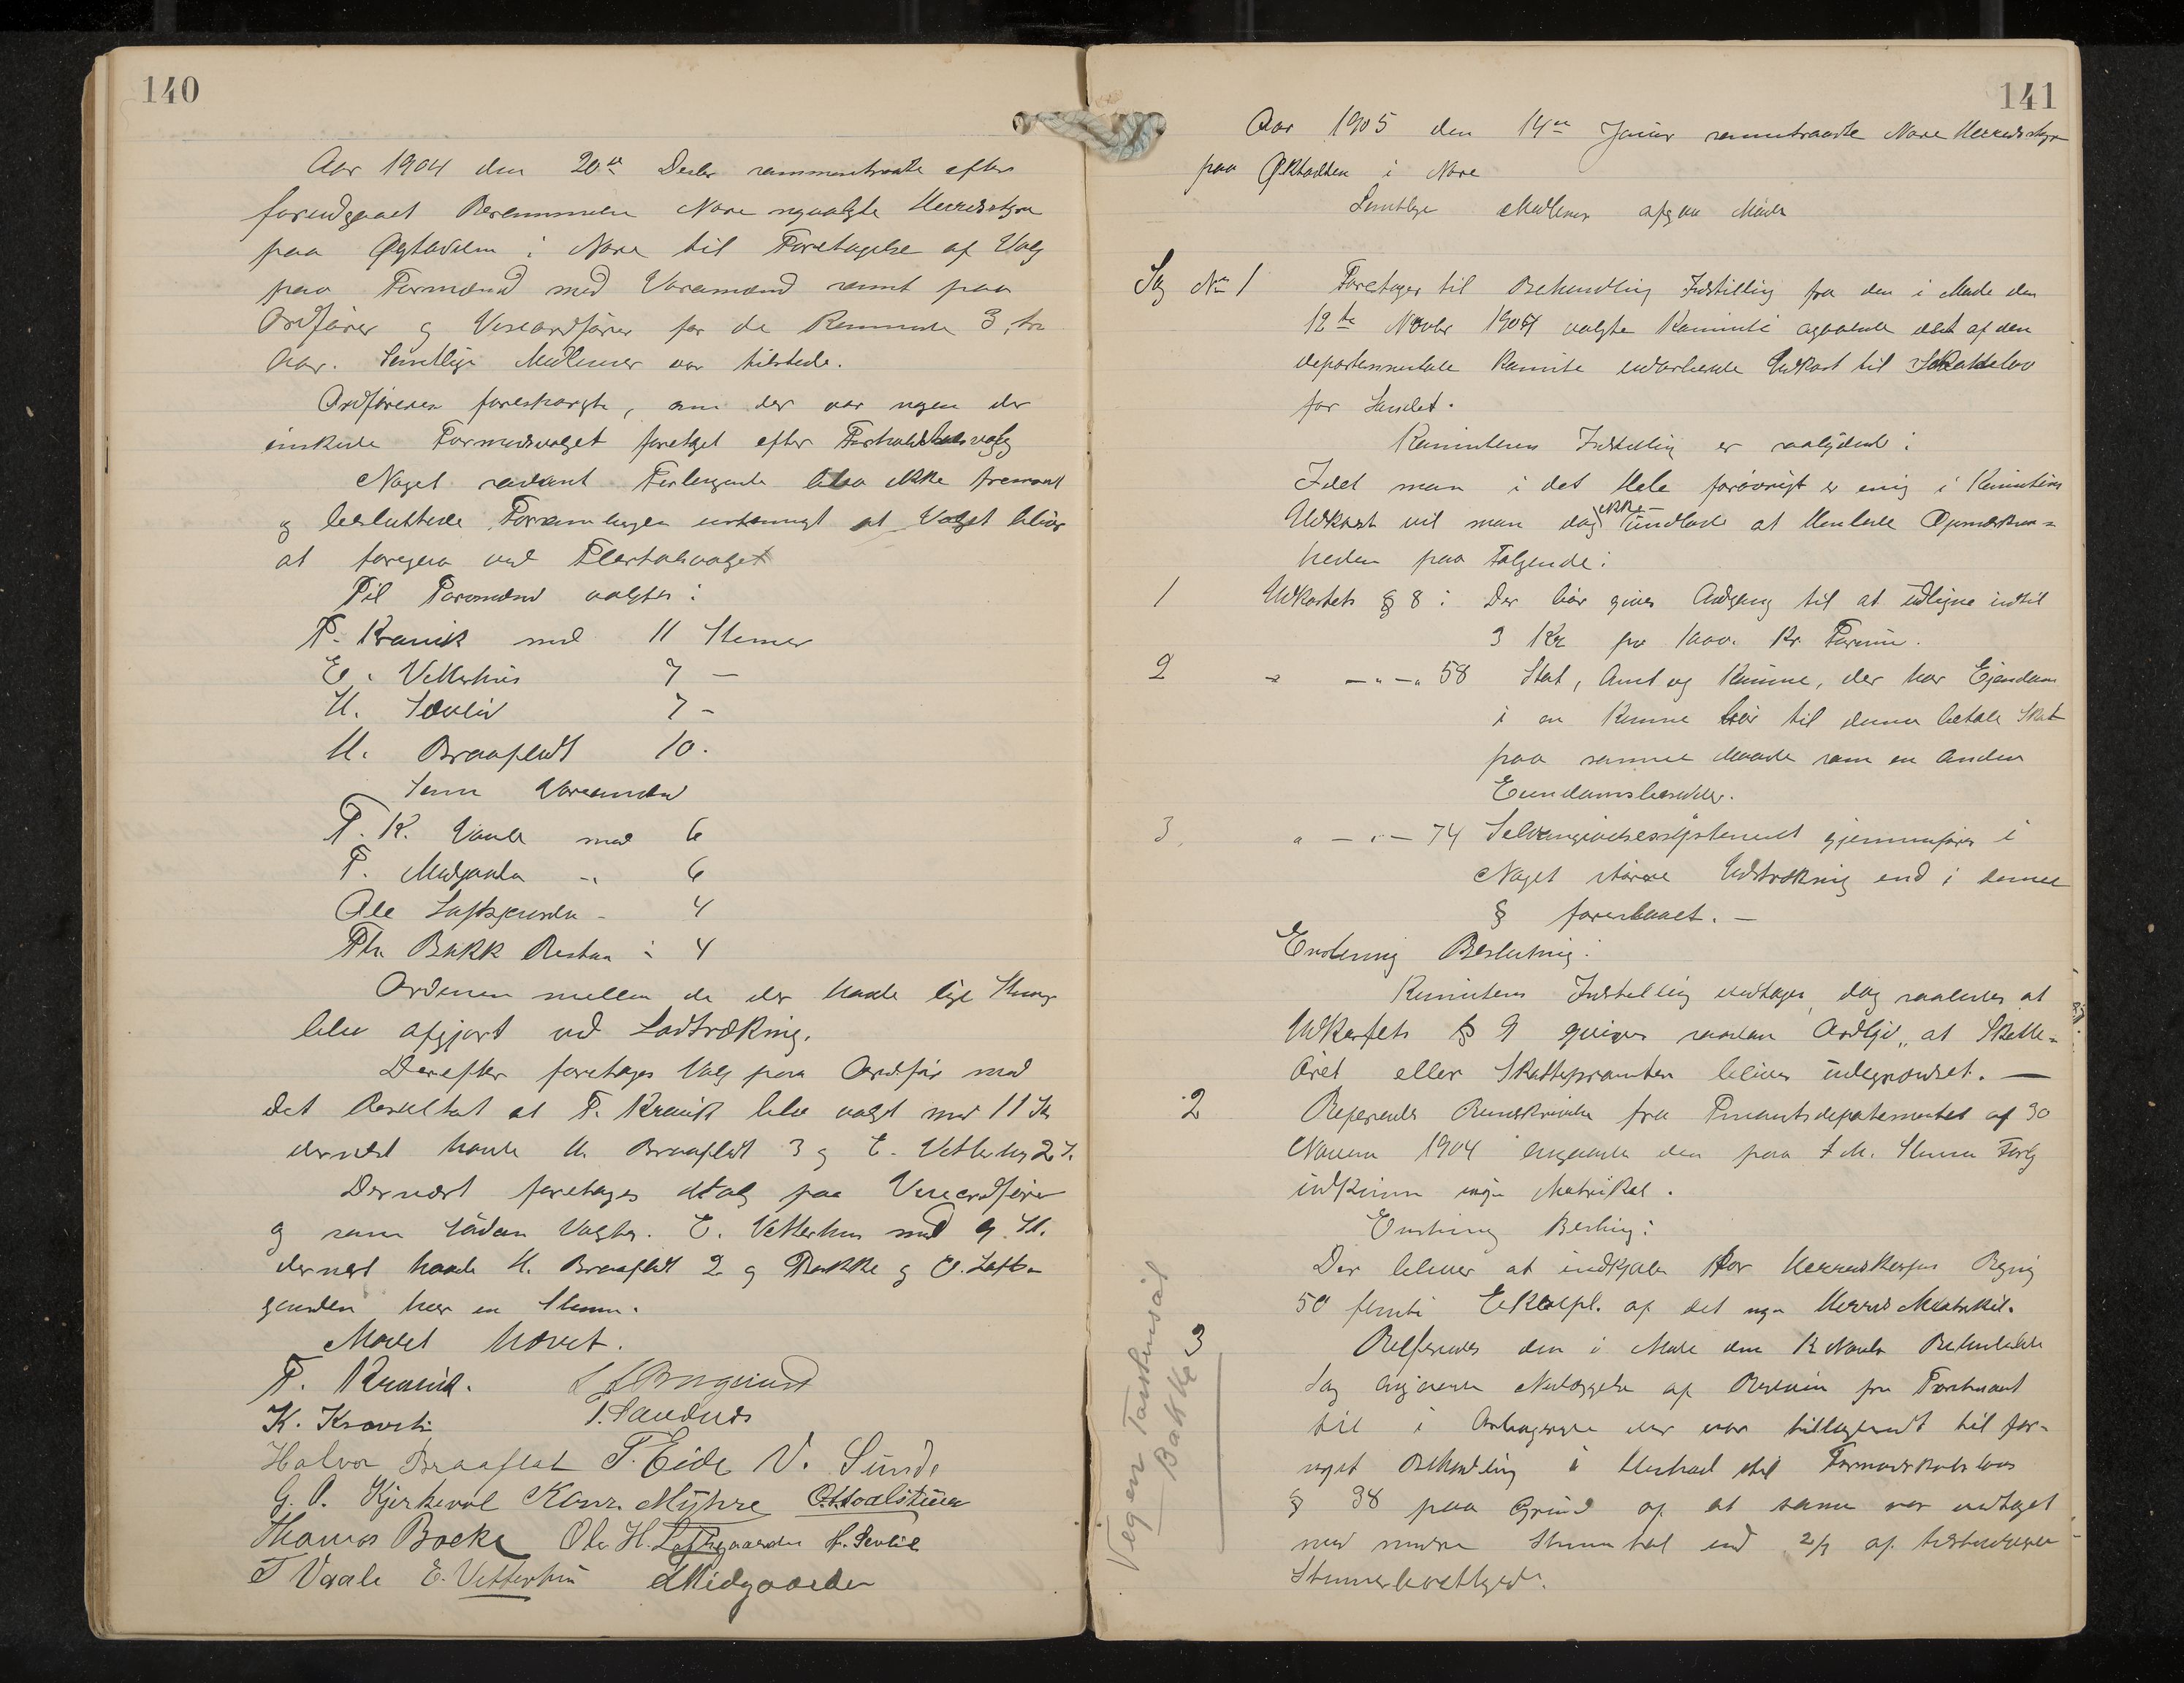 140
Aar 1904 den 20de Decbr sammentraadte efter
forudgaaet Berammelse Nore nyvalgte Herredsstyre
paa Øgtadden i Nore til Foretagelse af Valg
paa Formænd med Varamænd samt paa
Ordfører og Viseordfører for de Kommende 3, tre
Aar. Samtlige Medlemer var tilstede.
Ordføreren forespørgte, om der var nogen der
ønskede Formandsvalget foretaget efter Forholdstalsvalg
Noget saadant Forlangende blev ikke fremsat
og besluttede Forsamlingen enstemmigt at Valget bliver
at foregaa ved Flertalsvalget
Til Formænd valgtes:
T. Kravik med 11 Stemer
E. Vetterhus 7 —
H. Sævliv 7 -
H. Braafladt 10.
Som Varamænd
T. K. Vaale med 6
T. Midgaarden -"- 6
Ole Loftsgaarden - 4
Th. Bakk 4
Ordenen mellem de der havde lige Stemer
blev afgjort ved Lodtrækning.
Derefter foretages Valg paa Ordfør med
det Resultat at T. Kravik blev valgt med 11 St.
dernæst havde H. Braaflat 3 og E. Vetterhus 2 S.
Dernæst foretages Valg paa Viseordfører
og som sådan Valgtes. E. Vetterhus med 9 St.
dernæst havde H. Braaflat 2 og Bakke og O. Lofts-
gaarden hver en Stemme.
Mødet hævet.
T. Kravik.
K. Kravik T. Sandnes
Halvor Braaflat T. Eide V. Sunde
G. O. Kjerkevol Konr. Myhre
Thomas Bocke Ole H. Loftsgaarden H. Sevlie
T Vaale E. Vetterhus Midgaarden
141
Aar 1905 den 14de Januar sammentraadte Nore Herredsstyre
paa Øktadden i Nore
Samtlige Medlemer afgav Møde
Sag No 1 Foretages til Behandling Indstilling fra den i Møde den
12te Novbr 1904 valgte Kommite angaaende det af den
departementale Komite udarbeidede Udkast til Skattelov
for Landet.
Kommiteens Indstilling er saalydende:
Idet man i det Hele forøvrigt er enig i Kommiteens
Udkast vil man dog ikke undlade at Henlede Opmærksom-
heden paa Følgende:
1 Udkastets § 8: Der bør gives Adgang til at udligne indtil
3 Kr pr 1000. Kr. Formue.
2 " —"—" 58 Stat, Amt og Kommune, der har Eiendom
i en Kommune bør til denne betale Skat
paa samme Maade som en Anden
Eiendomsbesidder.
3. " —"— 74 Selvangivelsessystemet gjennemføres i
Noget større Udstrækning end i denne
§ foreslaaet. —
Enstemmig Beslutning:
Kommiteens Indstilling vedtages dog saaledes at
Udkastets § 9 gives saadan Ordlyd, at Skatte-
Øret eller Skatteprocenten bliver ubegrændset. —
2 Refereredes Rundskrivelse fra Finantsdepartementet af 30
Novem 1904 angaaende den paa
nye Matrikel.
Enstemmig Beslutning:
Der bliver at indkjøbe for Herredskassens Regning
50 femti Exempl. af det nye Herreds Matrikel.
3 Refereredes den i Møde den 12 Novbr Behandlede
Sag angaaende Nedlæggelse af
til i Anlægsveie der var tilbagesendt til for-
nyet Behandling i Henhold til Formandskabslovens
§ 38 paa Grund af at samme var vedtaget
med mindre Stemmetal end 2/3 af tilstedeværende
Stemmeberettigede.
Vegen
Bakke